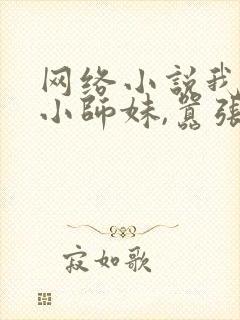 网络小説我
小師妹,囂張
寂如歌